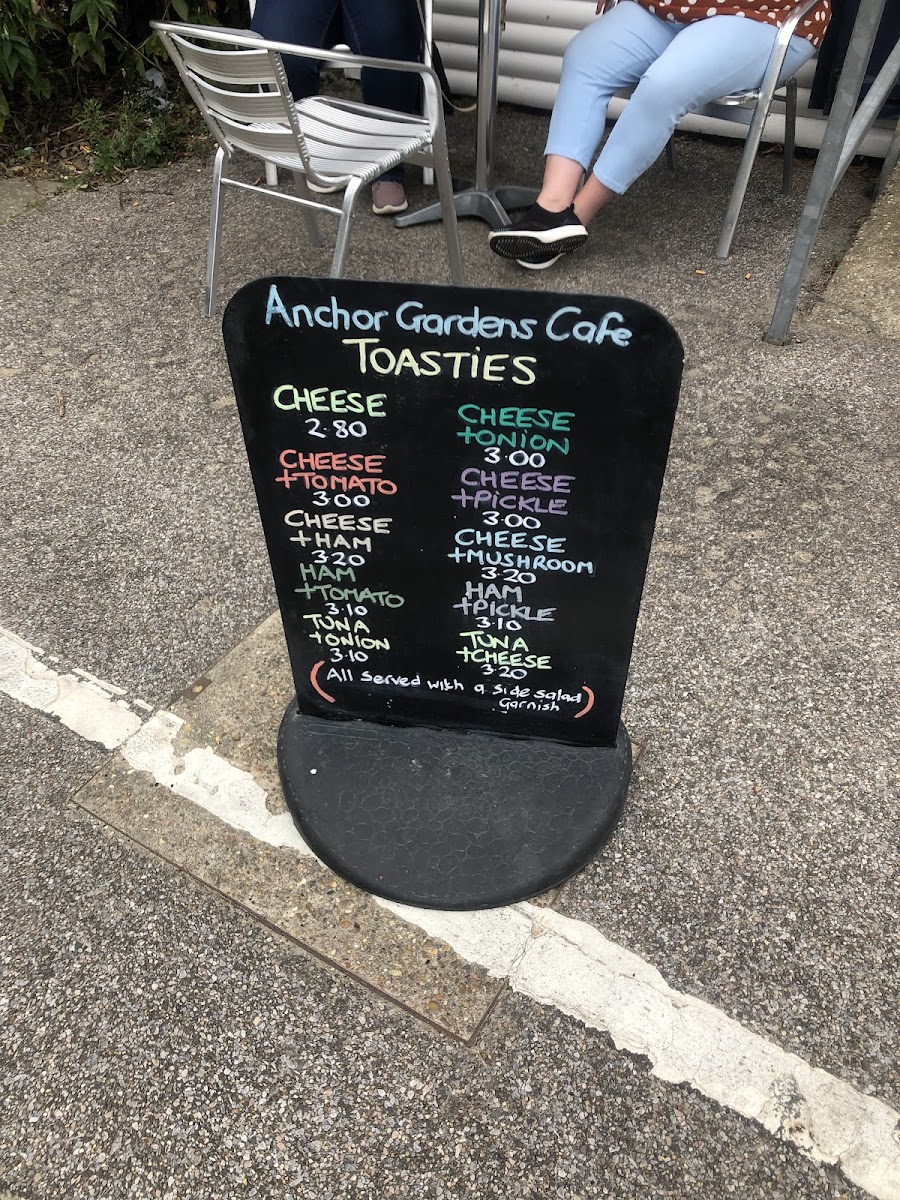 Anchor Gardens Cafe
TOASTIES
CHEESE
2.80
CHEESE
+TOMATO
3.00
CHEESE
+HAM
3.20
HAM
+TOMATO
3.10
TUNA
+ONION
3.10
CHEESE
+ONION
3.00
CHEESE
+PICKLE
3.00
CHEESE
+MUSHROOM
3.20
HAM
+PICKLE
3.10
TUNA
+CHEESE
3.20
(All served with a side salad
Garnish)